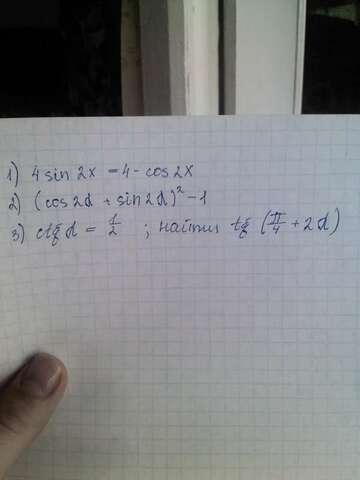 1) 4 sin 2x = 4 - cos 2x
2) (cos 2α + sin 2α)² - 1
3) ctg α = 1/2 ; найти tg (π/4 + 2α)